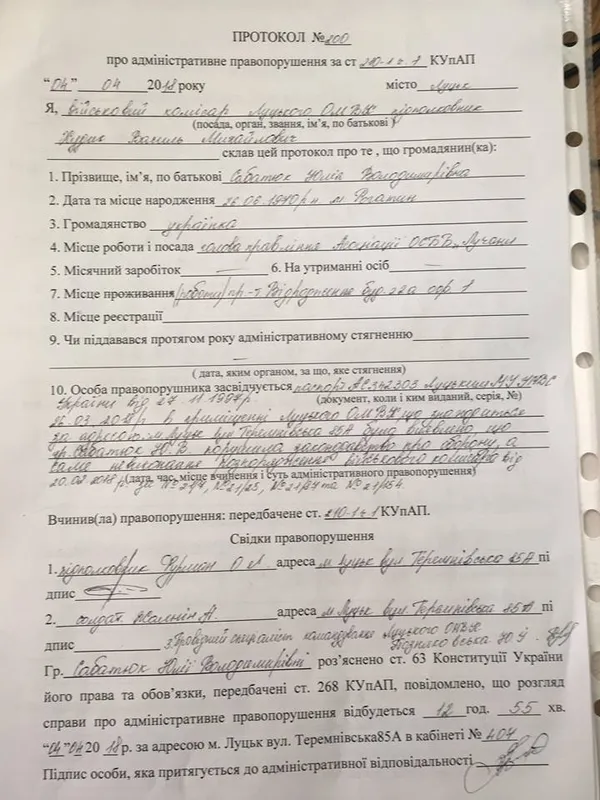 ПРОТОКОЛ №200
про адміністративне правопорушення за ст 210-1 ч 1 КУпАП
"04" 04 2018 року місто Луцьк
Я, військовий комісар Луцького ОМВК підполковник
(посада, орган, звання, ім'я, по батькові)
Василь Михайлович
склав цей протокол про те , що громадянин(ка):
1. Прізвище, ім'я, по батькові Сабатюк Юлія Володимирівна
2. Дата та місце народження 26.06.1970 р.н м. Рогатин
3. Громадянство українка
4. Місце роботи і посада голова правління Асоціації ОСББ „Лучани
5. Місячний заробіток 6. На утриманні осіб
7. Місце проживання (роботи) пр-т Відродження буд. 22а оф. 1
8. Місце реєстрації
9. Чи піддавався протягом року адміністративному стягненню
( дата, яким органом, за що, яке стягнення)
10. Особа правопорушника засвідчується паспорт АС342303 Луцьким МУ УМВС
України від 27.11.1997р. (документ, коли і ким виданий, серія, №)
26.03.2018р в приміщенні Луцького ОМВК що знаходиться
за адресою: м. Луцьк вул Теремнівська 85А було виявлено, що
гр. Сабатюк Ю.В. порушила законодавство про оборону, а
саме невиконання розпорядження військового комісара від
20.03.2018р. (дата, час, місце вчинення і суть адміністративного правопорушення)
Вчинив(ла) правопорушення: передбачене ст. 210-1 ч 1 КУпАП.
Свідки правопорушення
1. підполковник Фурман О адреса м Луцьк вул. Теремнівська 85А пі
дпис
2. солдат А. адреса м. Луцьк вул. Теремнівська 85А пі
дпис 3. Провідний спеціаліст командування Луцького ОМВК
Гр. Сабатюк Юлії Володимирівні роз'яснено ст. 63 Конституції України
його права та обов'язки, передбачені ст. 268 КУпАП, повідомлено, що розгляд
справи про адміністративне правопорушення відбудеться 12 год. 55 хв.
"04"04 2018 р. за адресою м. Луцьк вул. Теремнівська85А в кабінеті № 404
Підпис особи, яка притягується до адміністративної відповідальності